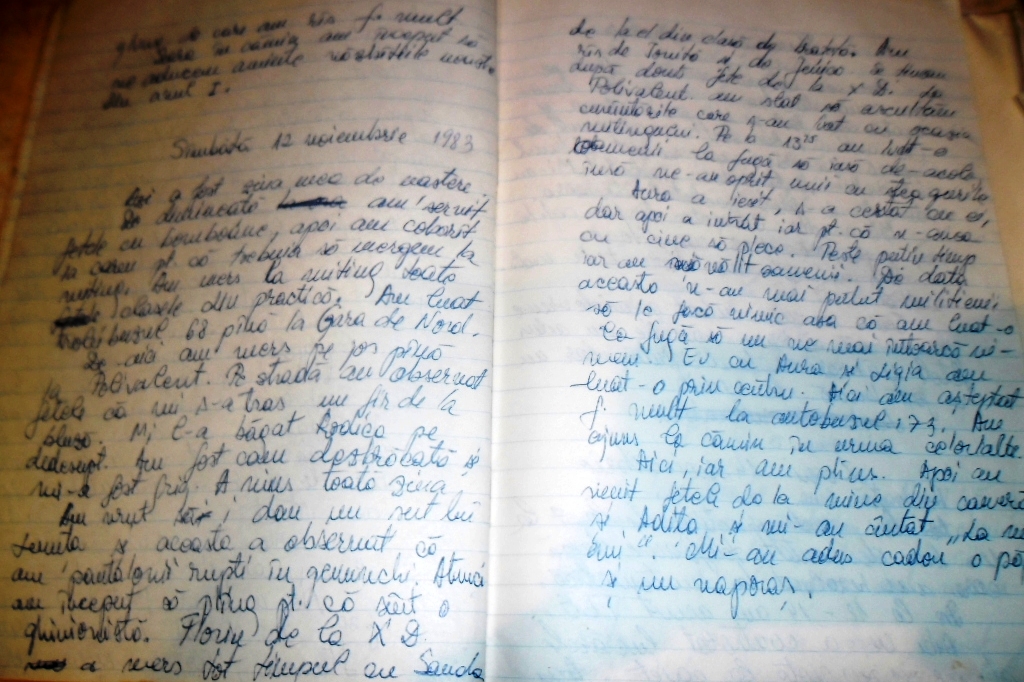 glume de care am rîs f. mult
Seara în cămin am început să
ne aducem aminte năzbîtiile noastre
din anul I.
Sîmbătă 12 noiembrie 1983
Azi a fost ziua mea de naștere.
De dimineață am servit
fetele cu bomboane, apoi am coborît
la careu pt. că trebuia să mergem la
miting. Am mers la miting toate
clasele din practică. Am luat
troleibuzul 68 pînă la Gara de Nord.
De-aici am mers pe jos pînă
la Polivalent. Pe stradă au observat
fetele că mi s-a tras un fir de la
bluză. Mi l-a băgat Rodica pe
dedesupt. Am fost cam dezbrăcată și
mi-a fost frig. A nins toată ziua.
Am vrut să-i dau un sut lui
Ionita și aceasta a observat că
am pantalonii rupți în genunchi. Atunci
am început să plîng pt. că sînt o
ghinionistă. Florin de la X D.
a mers tot timpul cu Sanda
de la el din clasă de brațetă. Am
rîs de Ionita și de Jenica se țineau
după două fete de la X D. La
Polivalent am stat să ascultăm
cuvîntările care s-au ținut cu ocazia
mitingului. Pe la 13 25 am luat-o
la fugă să ieșim de-acolo
însă ne-au oprit unii cu steagurile
Aura a ieșit, s-a certat cu ei,
dar apoi a intrat iar pt. că n-avea
cu cine să plece. Peste puțin timp
iar au năvălit oamenii. De data
aceasta n-au mai putut milițienii
să le facă nimic așa că am luat-o
la fugă să nu ne mai întoarcă ni-
meni. Eu cu Aura și Ligia am
luat-o prin centru. Aici am așteptat
f. mult la autobuzul 173. Am
ajuns la cămin în urma celorlalte.
Aici, iar am plîns. Apoi au
venit fetele de la mine din cameră
și Adita și mi-au cîntat „La mulți
ani". Mi-au adus cadou o
și un naporaș.